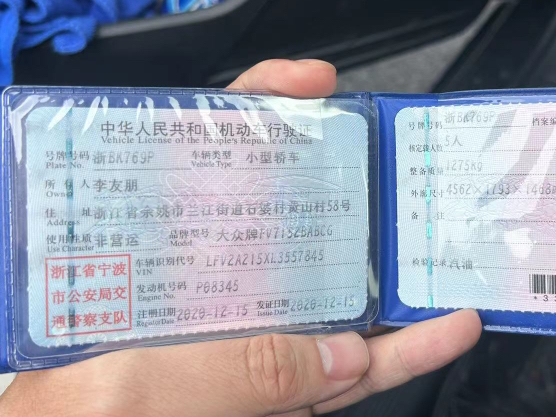 中华人民共和国机动车行驶证
Vehicle License of the People's Republic of China
号牌号码 浙BK769P 车辆类型 小型轿车
Plate No. Vehicle Type
所有人 李友朋
Owner
住址 浙江省余姚市兰江街道石婆村黄山村58号
Address
使用性质 非营运 品牌型号 大众牌FV7152BABCG
Use Character Model
浙江省宁波
市公安局交
通警察支队
车辆识别代号 LFV2A215XL3557845
VIN
发动机号码 P08345
Engine No.
注册日期 2020-12-15 发证日期 2020-12-15
Register Date Issue Date
号牌号码 浙BK769P 档案编
核定载人数 5人
整备质量 1275kg
外廓尺寸 4562×1793×1468
备注
检验记录 汽油